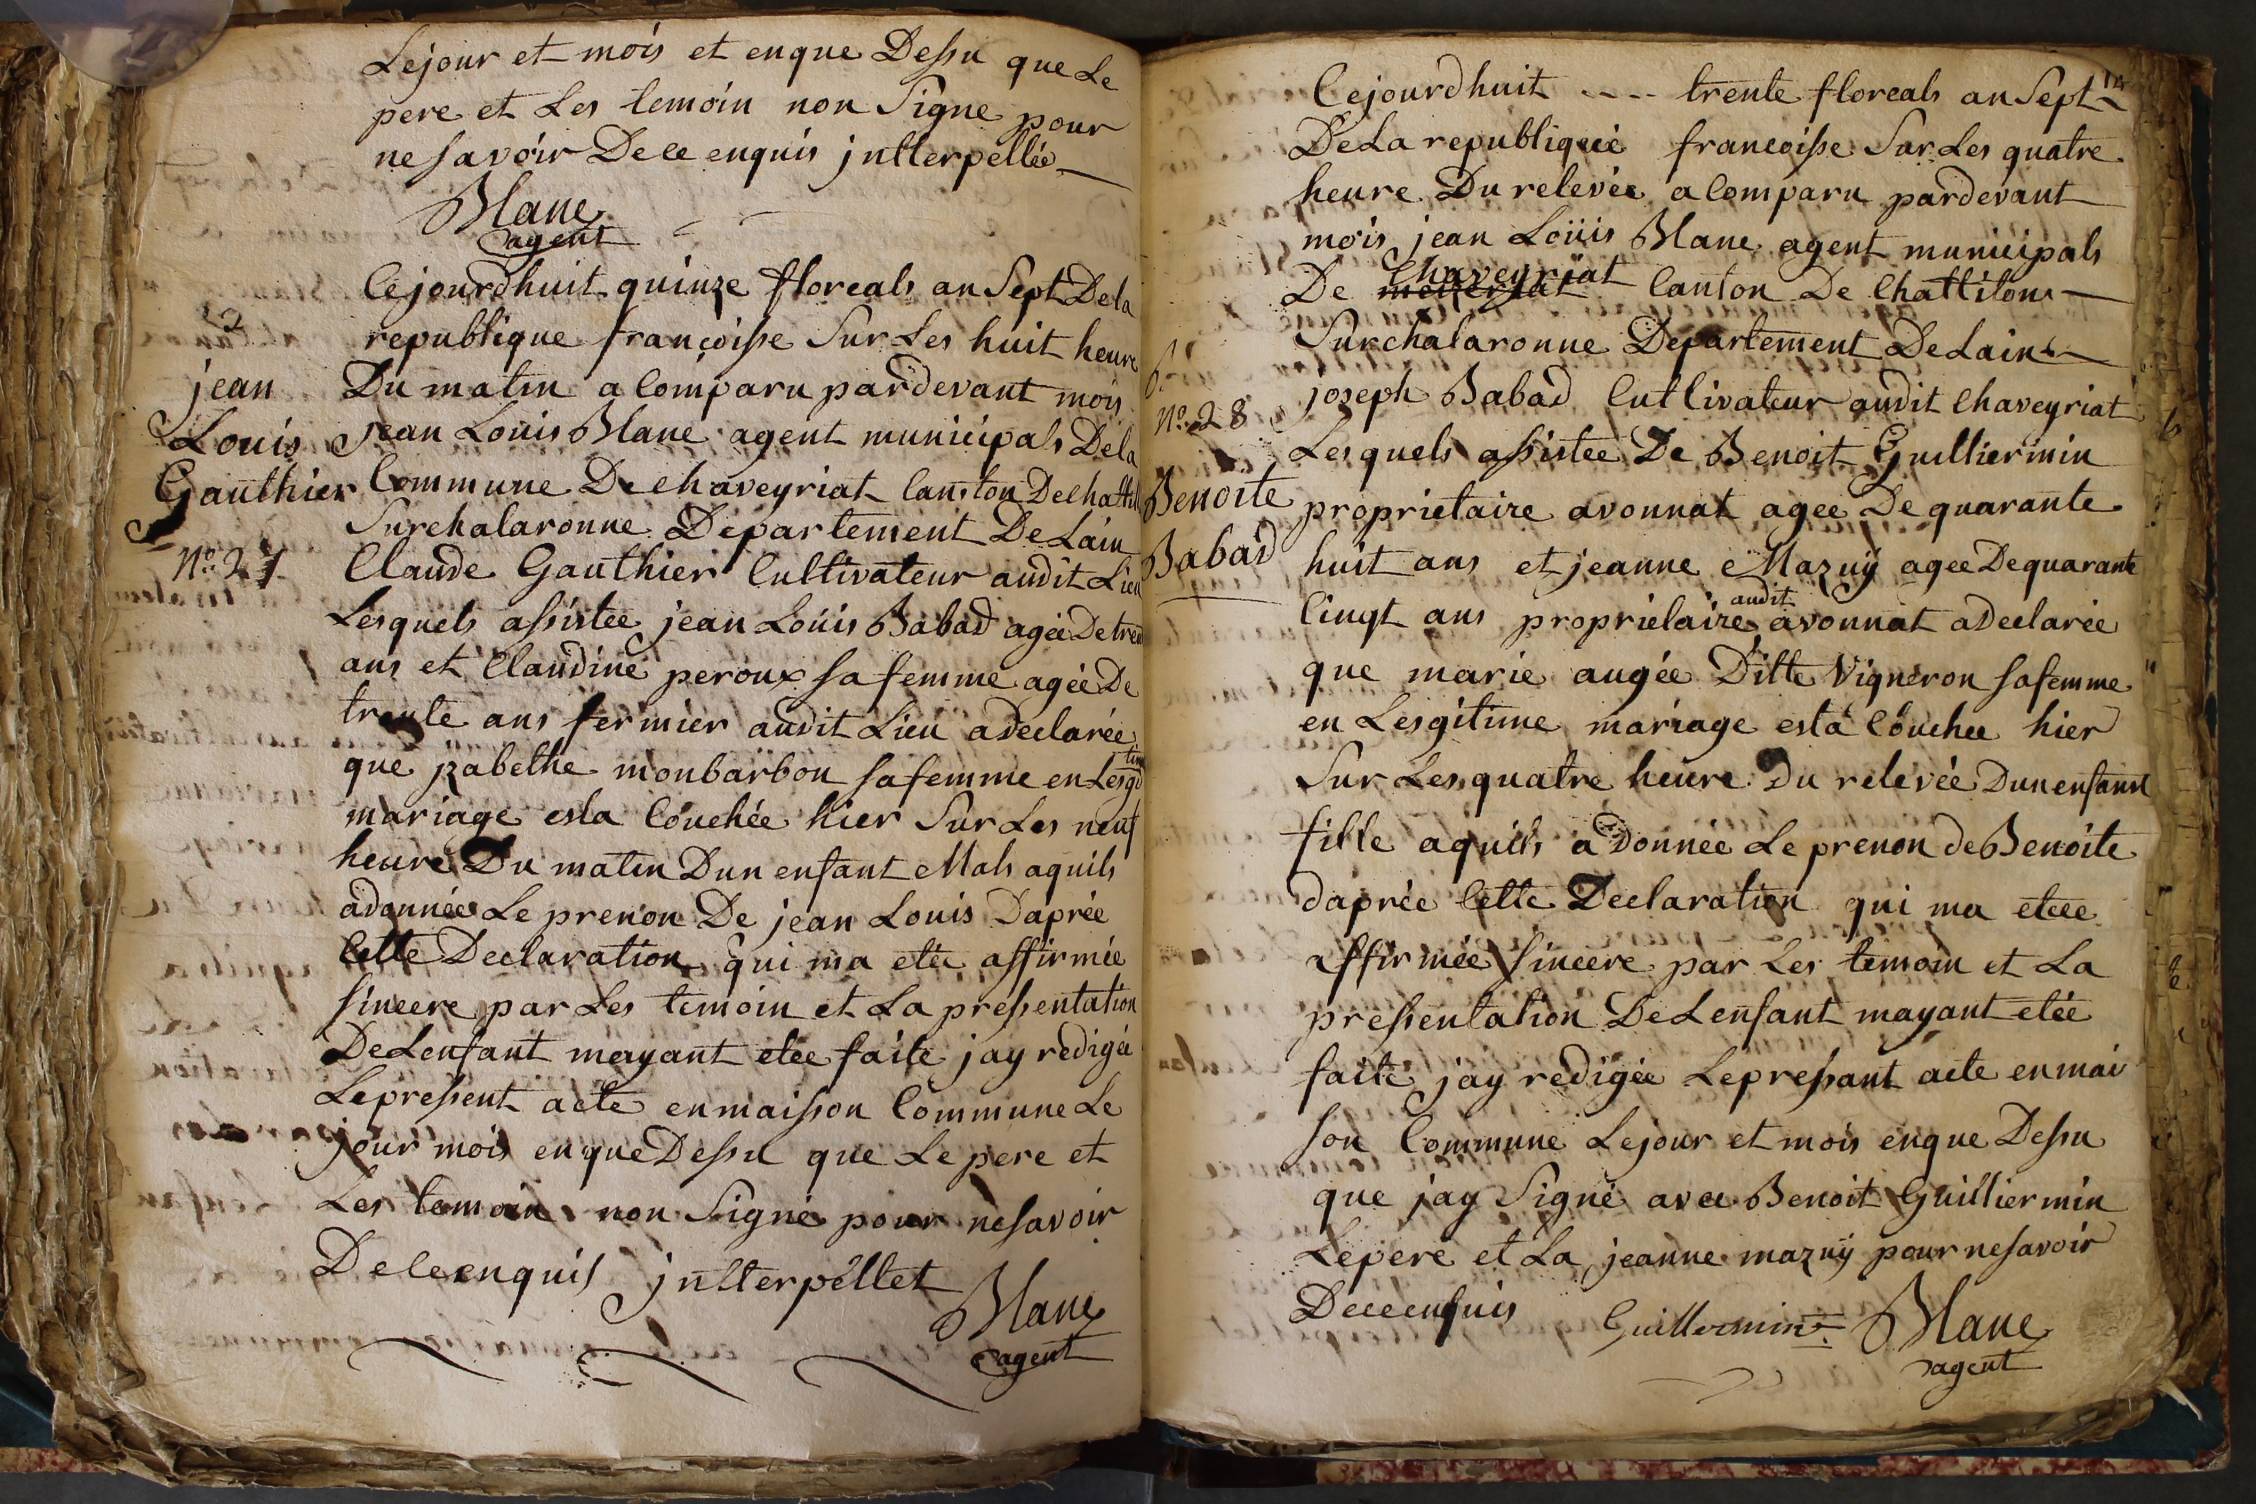 Lejour et mois et enque Dessu que Le
pere et Les temoin non Signe pour
nesavoir Dece enquis jntterpellée
Blanc
agent
Cejourdhuit quinze floreals an Sept Dela
republique françoisse Sur Les huit heure
Du matin a Comparu pardevant mois
jean Louis Blanc agent municipals Dela
Commune De chaveyriat Canston Dechattil
Surchalaronne Departement DeLain
Claude Gauthier Cultivateur audit Lieu
Lesquels assistee jean Loüis Babad agée Detren
ans et Claudine peroux sa femme agée De
trente ans fermier audit Lieu adeclarée
que jzabethe monbarbon safemme en Lesgi
time
mariage esta Couchée hier Sur Les neuf
heure Du matin Dun enfant Mals aquils
adonnée Le prenon De jean Louis Daprée
Cette Declaration qui ma etée affirmée
sincere par Les temoin et La pressentation
DeLenfant mayant etée faite jay redigée
Lepressent acte enmaisson Commune Le
jour mois enqueDessu que Le pere et
Les temoin non Signé pour nesavoir
Deceenquis jntterpéllet
Blanc
agent
jean
Louis
Gauthier
No. 27
14
Cejourdhuit ---- trente floreals an Sept
DeLa republiqueé francoisse Sur Les quatre
heure Du relevée a Comparu pardevant
mois jean Loüis Blanc agent municipals
Chaveyriat
De Canton De Chattilons
Surchalaronne Departement DeLain
joseph Babad Cultivateur audit Chaveyriat
Lesquels assistee De Benoit Guilliermin
proprietaire avonnat agee De quarante
huit ans et jeanne Mazuÿ agee Dequarante
Cinqt ans proprietaire audit avonnat adeclarée
que marie augée Ditte Vigneron safemme
en Lesgitime mariage esta Couchee hier
Sur Les quatre heure Du relevée Dunenfant
fille aquils a donnée Le prenon de Benoite
daprée Cette Declaration qui ma eteee
affirmée sincere par Les temoin et La
pressentation DeLenfant mayant etée
faite jay redigée Lepressant acte enmai
son Commune Lejour et mois enque Dessu
que jay Signé avec Benoit Guilliermin
Lepere et La jeanne mazuÿ pour nesavoir
Deceenquis
Guillermin
Blanc
agent
6.
No. 28
Benoite
Babad